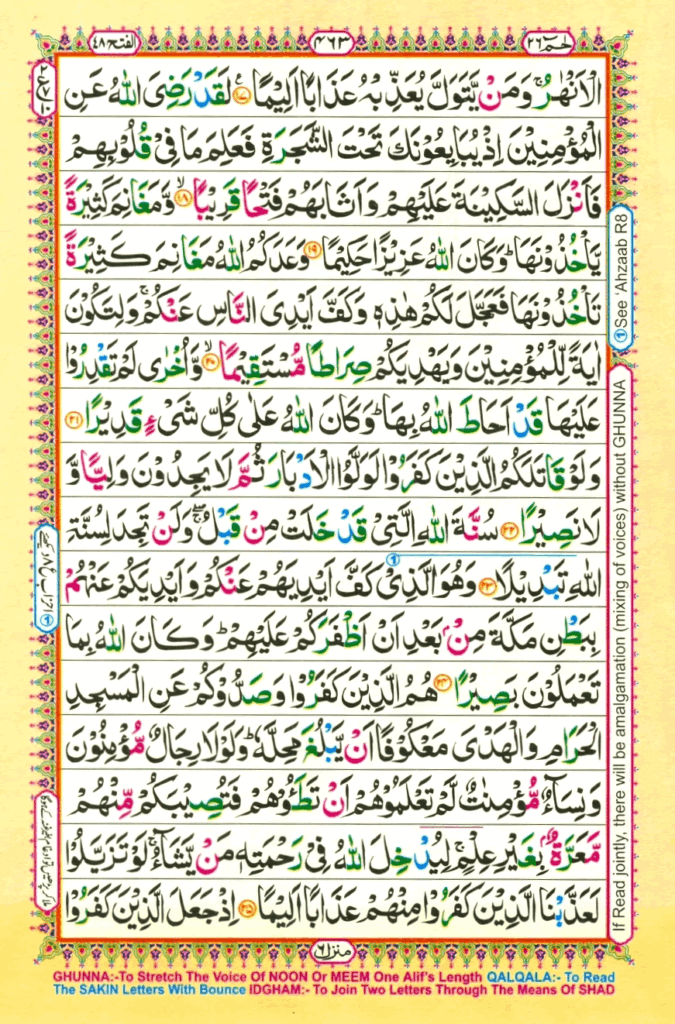 حٰمٓ ٢٦
٤٦٣
الفتح ٤٨
الْاَنْهٰرُ ۚ وَمَنْ يَّتَوَلَّ يُعَذِّبْهُ عَذَابًا اَلِيْمًا ﴿١٧﴾ لَقَدْ رَضِىَ اللّٰهُ عَنِ
الْمُؤْمِنِيْنَ اِذْ يُبَايِعُوْنَكَ تَحْتَ الشَّجَرَةِ فَعَلِمَ مَا فِىْ قُلُوْبِهِمْ
فَاَنْزَلَ السَّكِيْنَةَ عَلَيْهِمْ وَاَثَابَهُمْ فَتْحًا قَرِيْبًا ﴿١٨﴾ ۙ وَّمَغَانِمَ كَثِيْرَةً
يَّاْخُذُوْنَهَا ؕ وَكَانَ اللّٰهُ عَزِيْزًا حَكِيْمًا ﴿١٩﴾ وَعَدَكُمُ اللّٰهُ مَغَانِمَ كَثِيْرَةً
تَاْخُذُوْنَهَا فَعَجَّلَ لَكُمْ هٰذِهٖ وَكَفَّ اَيْدِىَ النَّاسِ عَنْكُمْ ۚ وَلِتَكُوْنَ
اٰيَةً لِّلْمُؤْمِنِيْنَ وَيَهْدِيَكُمْ صِرَاطًا مُّسْتَقِيْمًا ﴿٢٠﴾ ۙ وَّاُخْرٰى لَمْ تَقْدِرُوْا
عَلَيْهَا قَدْ اَحَاطَ اللّٰهُ بِهَا ؕ وَكَانَ اللّٰهُ عَلٰى كُلِّ شَىْءٍ قَدِيْرًا ﴿٢١﴾
وَلَوْ قَاتَلَكُمُ الَّذِيْنَ كَفَرُوْا لَوَلَّوُا الْاَدْبَارَ ثُمَّ لَا يَجِدُوْنَ وَلِيًّا وَّ
لَا نَصِيْرًا ﴿٢٢﴾ سُنَّةَ اللّٰهِ الَّتِىْ قَدْ خَلَتْ مِنْ قَبْلُ ۖۚ وَلَنْ تَجِدَ لِسُنَّةِ
اللّٰهِ تَبْدِيْلًا ﴿٢٣﴾ وَهُوَ الَّذِىْ كَفَّ اَيْدِيَهُمْ عَنْكُمْ وَاَيْدِيَكُمْ عَنْهُمْ
بِبَطْنِ مَكَّةَ مِنْۢ بَعْدِ اَنْ اَظْفَرَكُمْ عَلَيْهِمْ ؕ وَكَانَ اللّٰهُ بِمَا
تَعْمَلُوْنَ بَصِيْرًا ﴿٢٤﴾ هُمُ الَّذِيْنَ كَفَرُوْا وَصَدُّوْكُمْ عَنِ الْمَسْجِدِ
الْحَرَامِ وَالْهَدْىَ مَعْكُوْفًا اَنْ يَّبْلُغَ مَحِلَّهٗ ؕ وَلَوْلَا رِجَالٌ مُّؤْمِنُوْنَ
وَنِسَآءٌ مُّؤْمِنٰتٌ لَّمْ تَعْلَمُوْهُمْ اَنْ تَطَـُٔوْهُمْ فَتُصِيْبَكُمْ مِّنْهُمْ
مَّعَرَّةٌۢ بِغَيْرِ عِلْمٍ ۚ لِيُدْخِلَ اللّٰهُ فِىْ رَحْمَتِهٖ مَنْ يَّشَآءُ ۚ لَوْ تَزَيَّلُوْا
لَعَذَّبْنَا الَّذِيْنَ كَفَرُوْا مِنْهُمْ عَذَابًا اَلِيْمًا ﴿٢٥﴾ اِذْ جَعَلَ الَّذِيْنَ كَفَرُوْا
منزل ٦
① See 'Ahzaab R8
If Read jointly, there will be amalgamation (mixing of voices) without GHUNNA
GHUNNA:-To Stretch The Voice Of NOON Or MEEM One Alif's Length QALQALA:- To Read
The SAKIN Letters With Bounce IDGHAM:- To Join Two Letters Through The Means Of SHAD